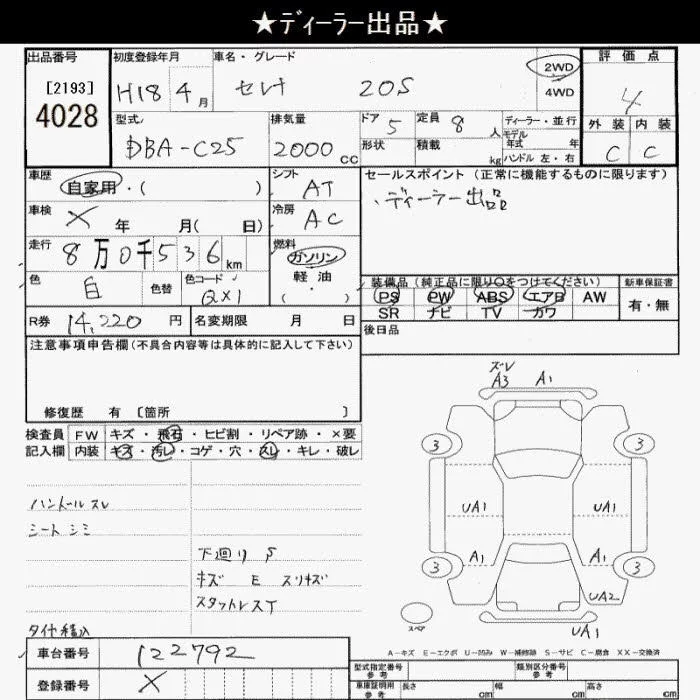 ★ディーラー出品★
出品番号 [2193] 4028
初度登録年月 H18 4月
車名・グレード セレナ 20S
2WD 4WD
評価点 4
外装 内装
C C
型式 DBA-C25
排気量 2000cc
ドア 5 形状
定員 8人 積載 kg
ディーラー・並行
モデル年式 年
ハンドル 左・右
車歴 自家用・( )
シフト AT
セールスポイント(正常に機能するものに限ります)
、ディーラー出品
車検 X 年 月( 日)
冷房 AC
走行 8万0千536km
燃料 ガソリン 軽油 ( ・ )
色 白 色替 色コード QX1
装備品(純正品に限り○をつけてください)
PS PW ABS エアB AW
SR ナビ TV カワ
新車保証書 有・無
R券 14,220円 名変期限 月 日
後日品
注意事項申告欄(不具合内容等は具体的に記入して下さい)
修復歴 有 [箇所 ]
検査員記入欄
FW キズ・飛石・ヒビ割・リペア跡・×要
内装 キズ・汚レ・コゲ・穴・スレ・キレ・破レ
ズレ
A3 A1
3 3
UA1 UA1
A1 A1
3 3
UA2
UA1
スペア
ハンドル スレ
シート シミ
下廻り S
キズ E スリキズ
スタットレスT
タイヤ積込
A-キズ E-エクボ U-凹み W-補修跡 S-サビ C-腐食 XX-交換済
車台番号 122792
登録番号 X
型式指定番号 参考
類別区分番号 参考
車庫証明用 参考 長さ cm 幅 cm 高さ cm